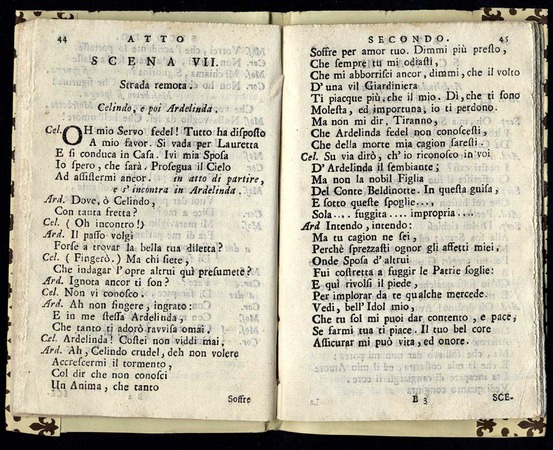 44 ATTO
SCENA VII.
Strada remota.
Celindo, e poi Ardelinda.
Cel. OH mio Servo fedel! Tutto ha disposto
A mio favor. Si vada per Lauretta
E si conduca in Casa. Ivi mia Sposa
Io spero, che sarà. Prosegua il Cielo
Ad assistermi ancor. in atto di partire,
e s'incontra in Ardelinda.
Ard. Dove, ò Celindo,
Con tanta fretta?
Cel. (Oh incontro!)
Ard. Il passo volgi
Forse a trovar la bella tua diletta?
Cel. (Fingerò.) Ma chi siete,
Che indagar l'opre altrui quì presumete?
Ard. Ignota ancor ti son?
Cel. Non vi conosco.
Ard. Ah non fingere, ingrato:
E in me stessa Ardelinda,
Che tanto ti adorò ravvisa omai.
Cel. Ardelinda! Costei non viddi mai.
Ard. Ah, Celindo crudel, deh non volere
Accrescermi il tormento,
Col dir che non conosci
Un Anima, che tanto
Soffre
SECONDO. 45
Soffre per amor tuo. Dimmi più presto,
Che sempre tu mi odiasti,
Che mi abborrisci ancor, dimmi, che il volto
D'una vil Giardiniera
Ti piacque più, che il mio. Dì, che ti sono
Molesta, ed importuna, io ti perdono.
Ma non mi dir, Tiranno,
Che Ardelinda fedel non conoscesti,
Che della morte mia cagion saresti.
Cel. Su via dirò, ch'io riconosco in voi
D'Ardelinda il sembiante;
Ma non la nobil Figlia
Del Conte Beldinotte. In questa guisa,
E sotto queste spoglie...,
Sola.... fuggita.... impropria....
Ard Intendo, intendo:
Ma tu cagion ne sei,
Perchè sprezzasti ognor gli affetti miei,
Onde Sposa d'altrui
Fui costretta a fuggir le Patrie soglie:
E quì rivolsi il piede,
Per implorar da te qualche mercede.
Vedi, bell'Idol mio,
Che tu sol mi puoi dar contento, e pace,
Se farmi tua ti piace. Il tuo bel core
Assicurar mi può vita, ed onore.
B 3 SCE-